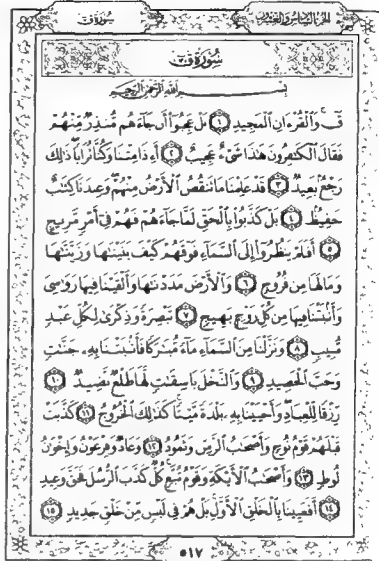 الجزء السادس والعشرون
سورة ق
سُورَةُ ق
بِسْمِ اللَّهِ الرَّحْمَٰنِ الرَّحِيمِ
قٓ وَٱلْقُرْءَانِ ٱلْمَجِيدِ ١ بَلْ عَجِبُوٓا۟ أَن جَآءَهُم مُّنذِرٌ مِّنْهُمْ
فَقَالَ ٱلْكَٰفِرُونَ هَٰذَا شَىْءٌ عَجِيبٌ ٢ أَءِذَا مِتْنَا وَكُنَّا تُرَابًا ذَٰلِكَ
رَجْعٌۢ بَعِيدٌ ٣ قَدْ عَلِمْنَا مَا تَنقُصُ ٱلْأَرْضُ مِنْهُمْ وَعِندَنَا كِتَٰبٌ
حَفِيظٌۢ ٤ بَلْ كَذَّبُوا۟ بِٱلْحَقِّ لَمَّا جَآءَهُمْ فَهُمْ فِىٓ أَمْرٍ مَّرِيجٍ
٥ أَفَلَمْ يَنظُرُوٓا۟ إِلَى ٱلسَّمَآءِ فَوْقَهُمْ كَيْفَ بَنَيْنَٰهَا وَزَيَّنَّٰهَا
وَمَا لَهَا مِن فُرُوجٍ ٦ وَٱلْأَرْضَ مَدَدْنَٰهَا وَأَلْقَيْنَا فِيهَا رَوَٰسِىَ
وَأَنۢبَتْنَا فِيهَا مِن كُلِّ زَوْجٍۭ بَهِيجٍ ٧ تَبْصِرَةً وَذِكْرَىٰ لِكُلِّ عَبْدٍ
مُّنِيبٍ ٨ وَنَزَّلْنَا مِنَ ٱلسَّمَآءِ مَآءً مُّبَٰرَكًا فَأَنۢبَتْنَا بِهِۦ جَنَّٰتٍ
وَحَبَّ ٱلْحَصِيدِ ٩ وَٱلنَّخْلَ بَاسِقَٰتٍ لَّهَا طَلْعٌ نَّضِيدٌ ١٠
رِّزْقًا لِّلْعِبَادِ وَأَحْيَيْنَا بِهِۦ بَلْدَةً مَّيْتًا كَذَٰلِكَ ٱلْخُرُوجُ ١١ كَذَّبَتْ
قَبْلَهُمْ قَوْمُ نُوحٍ وَأَصْحَٰبُ ٱلرَّسِّ وَثَمُودُ ١٢ وَعَادٌ وَفِرْعَوْنُ وَإِخْوَٰنُ
لُوطٍ ١٣ وَأَصْحَٰبُ ٱلْأَيْكَةِ وَقَوْمُ تُبَّعٍ كُلٌّ كَذَّبَ ٱلرُّسُلَ فَحَقَّ وَعِيدِ
١٤ أَفَعَيِينَا بِٱلْخَلْقِ ٱلْأَوَّلِ بَلْ هُمْ فِى لَبْسٍ مِّنْ خَلْقٍ جَدِيدٍ ١٥
٥١٧